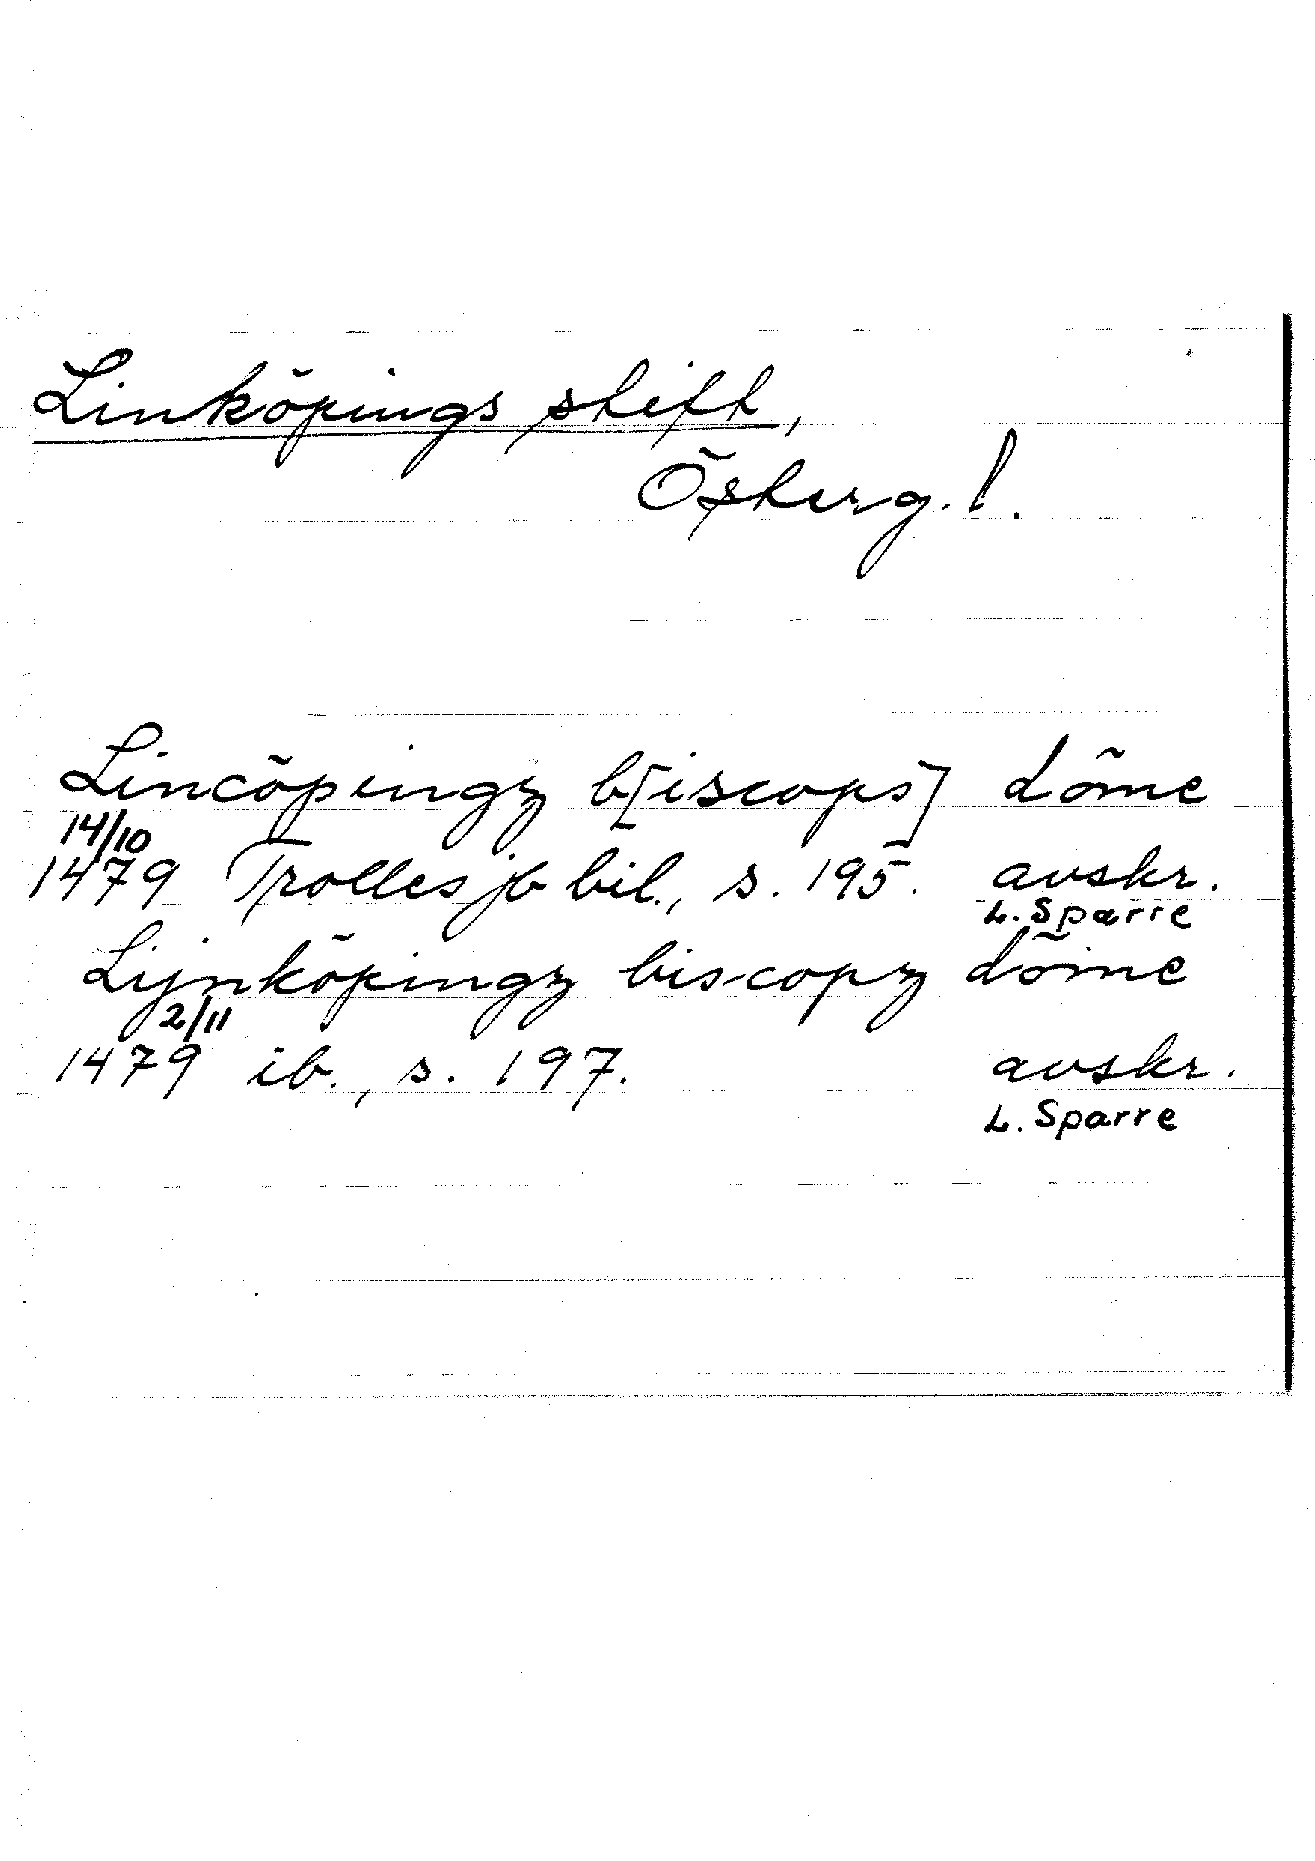 Linköpings stift,
Österg. l.
Lincöpingz b[iscops] döme
14/10
1479 Trolles jb bil., s. 195. avskr.
L. Sparre
Lijnköpingz biscopz döme
2/11
1479 ib., s. 197. avskr.
L. Sparre